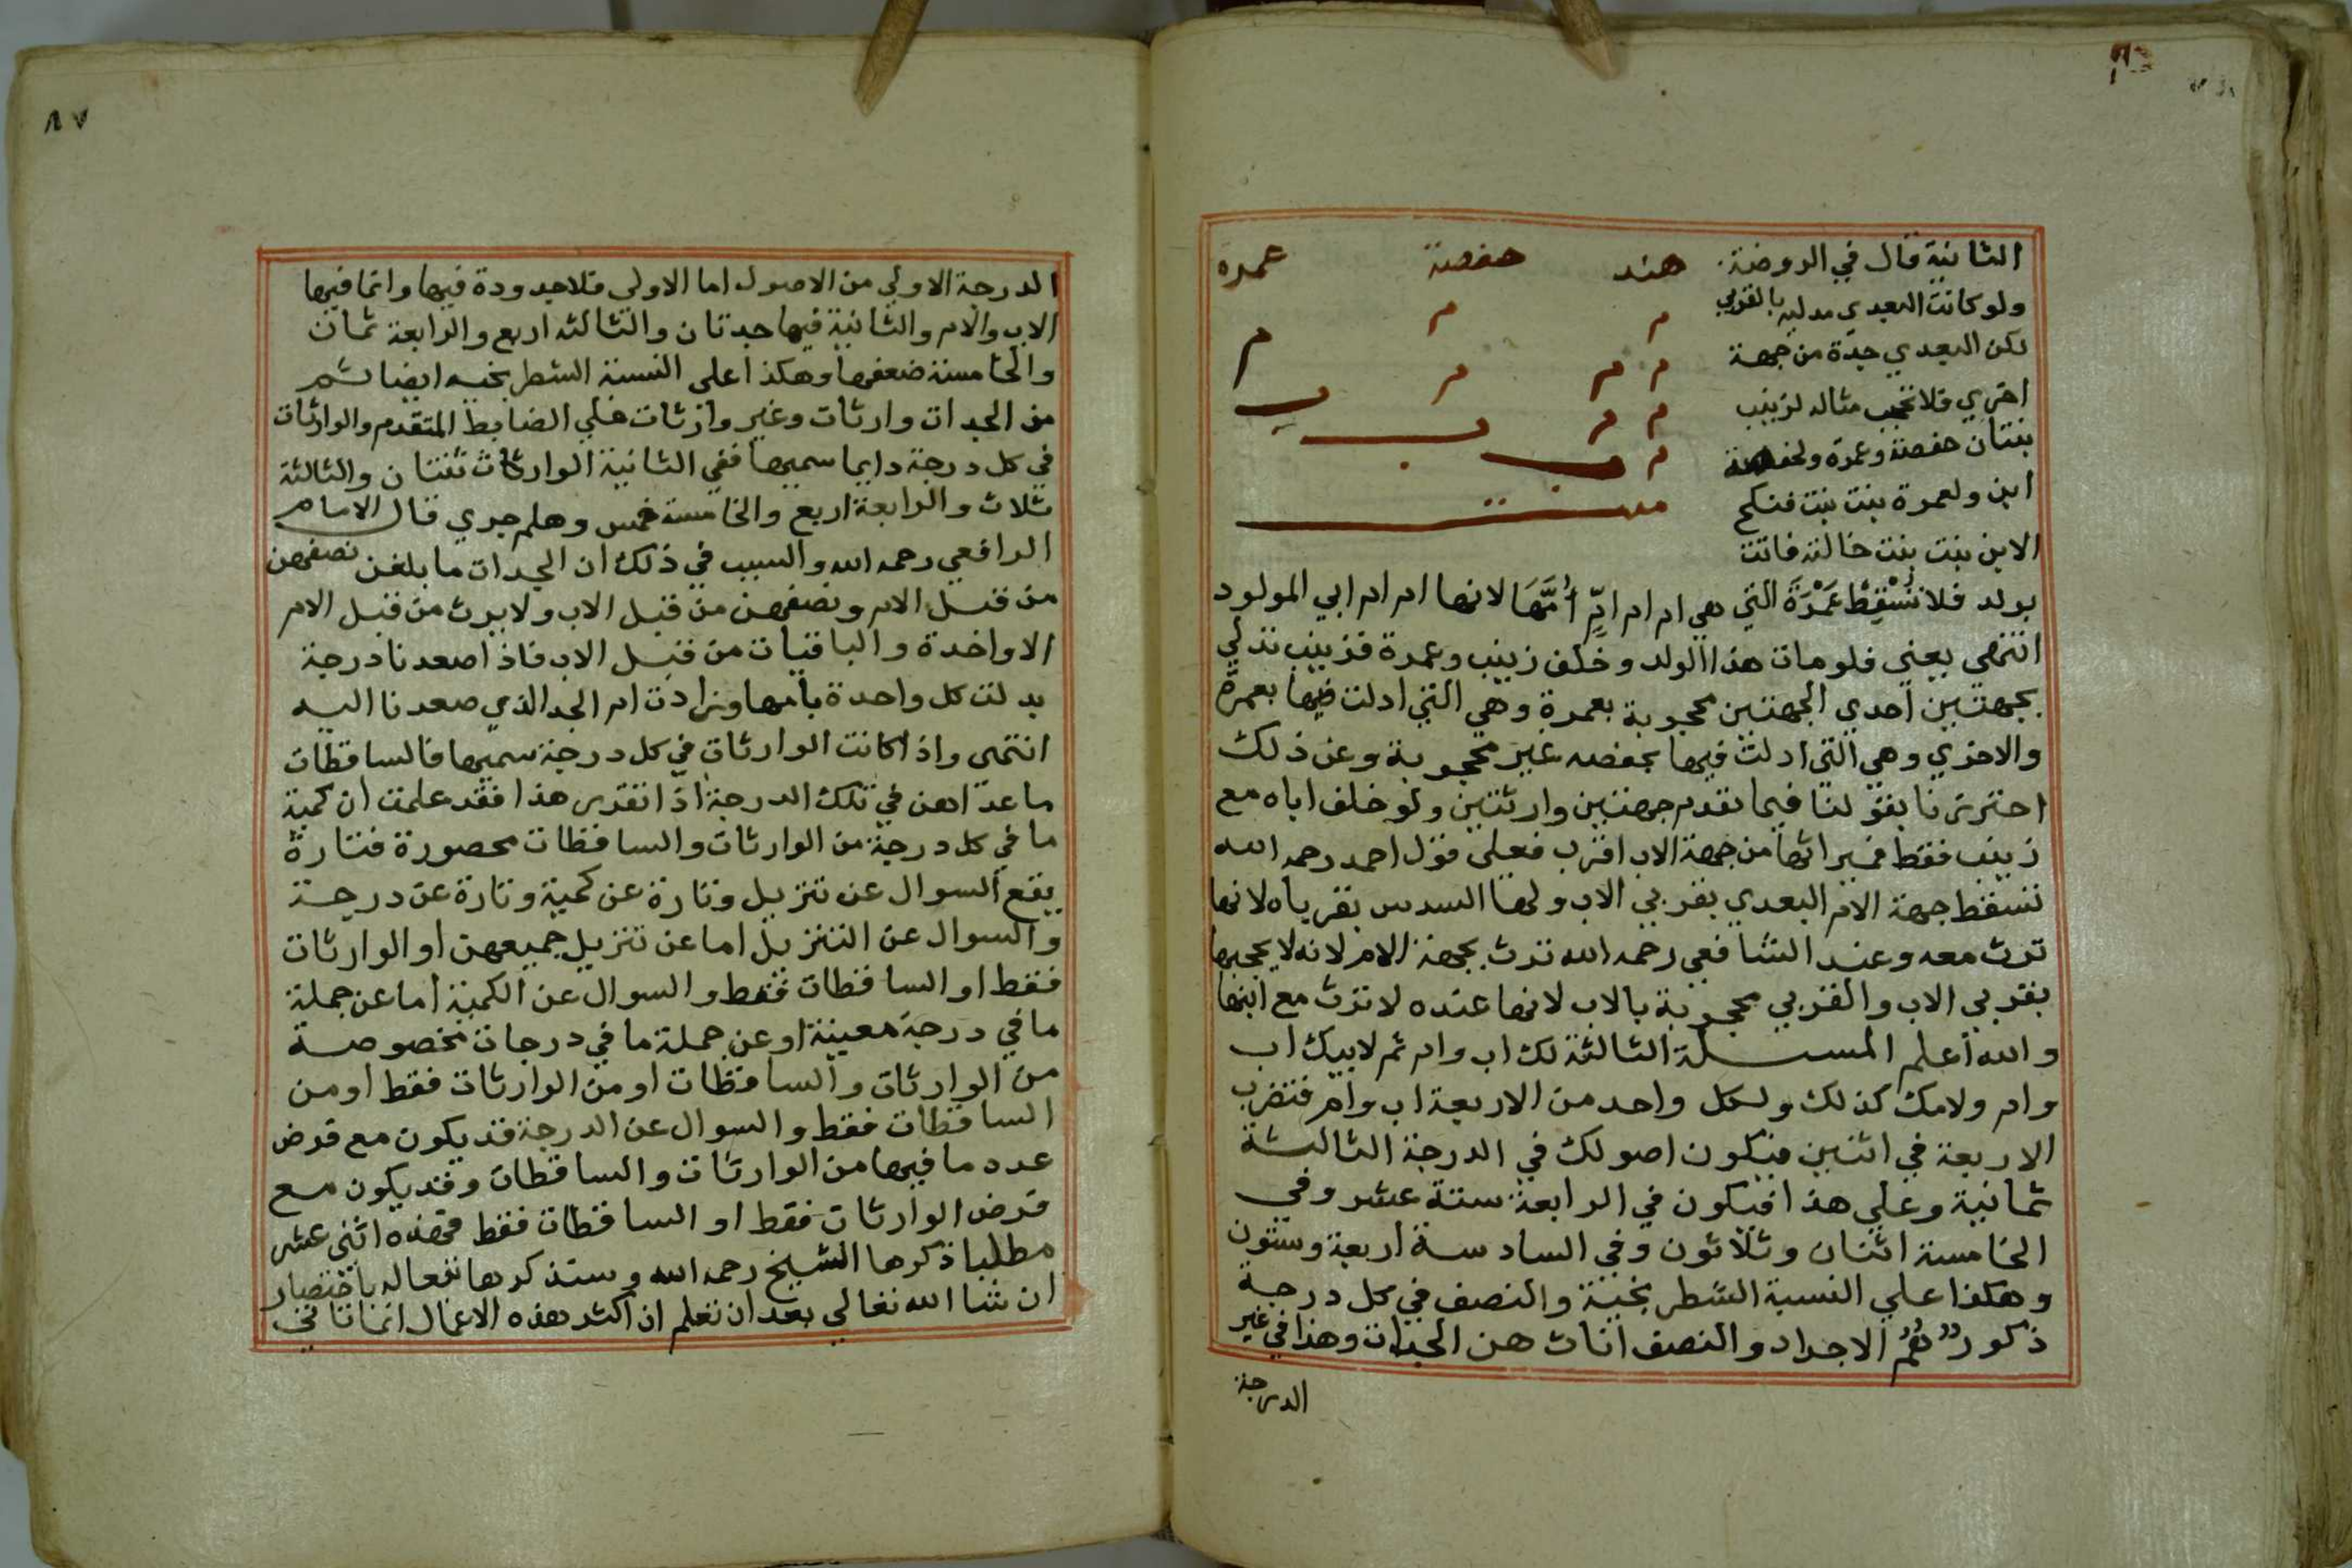 الثانية قال في الروضة
هند حفصة عمرة
ولو كانت البعدي مدليه بالقربي
لكن البعدي جدة من جهة
اخري فلا تحجب مثاله لزينب
بنتان حفصة وعمرة ولحفصة
ابن ولعمرة بنت بنت فنكح
الابن بنت بنت خالته فاتت
بولد فلا تُسْقِطُ عَمْرَةَ التي هي ام ام امِّ أُمَّهَا لانها ام ام ابي المولود
انتهى يعني فلو مات هذا الولد وخلف زينب وعمرة فزينب تدلي
بجهتين احدي الجهتين محجوبة بعمرة وهي التي ادلت فيها بعمرة
والاخري وهي التي ادلت فيها بحفصه غير محجوبة وعن ذلك
احترزنا بقولنا فيما تقدم جهتين وارثتين ولو خلف اباه مع
زينب فقط فميراثها من جهة الاب اقرب فعلى قول احمد رحمه الله
تسقط جهة الام البعدي بقربي الاب ولها السدس بقرباه لانها
ترث معه وعند الشافعي رحمه الله ترث بجهة الام لانه لا يحجبها
بقربي الاب والقربي محجوبة بالاب لانها عنده لا ترث مع ابنها
والله اعلم المسـلة الثالثة لك اب وام ثم لابيك اب
وام ولامك كذلك ولكل واحد من الاربعة اب وام فتضرب
الاربعة في اثنين فيكون اصولك في الدرجة الثالثة
ثمانية وعلي هذا فيكون في الرابعة ستة عشر وفي
الخامسة اثنان وثلاثون وفي السادسة اربعة وستون
وهكذا علي النسبة الشطرنجية والنصف في كل درجة
ذكور هُمُ الاجداد والنصف اناث هن الجدات وهذا في غير
الدرجة
٨٧
الدرجة الاولي من الاصول اما الاولي فلا جدودة فيها وانما فيها
الاب والام والثانية فيها جدتان والثالثه اربع والرابعة ثمان
والخامسة ضعفها وهكذا على النسبة الشطرنجيه ايضا ثم
من الجدات وارثات وغير وارثات علي الضابط المتقدم والوارثات
في كل درجة دايما سميها ففي الثانية الوارثات ثنتان والثالثة
ثلاث والرابعة اربع والخامسة خمس وهلم جري قال الامام
الرافعي رحمه الله والسبب في ذلك ان الجدات ما بلغن نصفهن
من قبل الام ونصفهن من قبل الاب ولا يرث من قبل الام
الا واحدة والباقيات من قبل الاب فاذا صعدنا درجة
بدلت كل واحدة بامها وزادت ام الجد الذي صعدنا اليه
انتهى واذا كانت الوارثات في كل درجة سميها فالساقطات
ما عداهن في تلك الدرجة اذا تقرر هذا فقد علمت ان كمية
ما في كل درجة من الوارثات والساقطات محصورة فتارة
يقع السوال عن تنزيل وتارة عن كمية وتارة عن درجة
والسوال عن التنزيل اما عن تنزيل جميعهن او الوارثات
فقط او الساقطات فقط والسوال عن الكمية اما عن جملة
ما في درجة معينة او عن جملة ما في درجات مخصوصة
من الوارثات والساقطات او من الوارثات فقط او من
الساقطات فقط والسوال عن الدرجة قد يكون مع فرض
عدد ما فيها من الوارثات والساقطات وقد يكون مع
فرض الوارثات فقط او الساقطات فقط فهذه اثني عشر
مطلبا ذكرها الشيخ رحمه الله وسنذكرها باختصار
ان شا الله تعالي بعد ان تعلم ان اكثر هذه الاعمال في